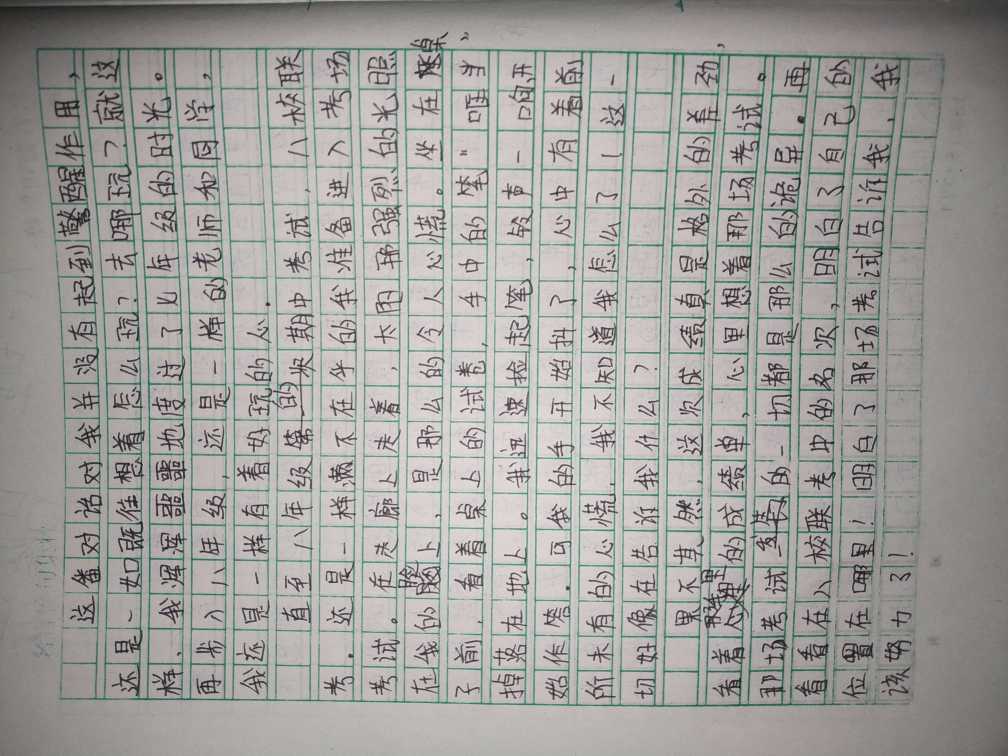 这番对话对我并没有起到警醒作用，
还是一如既往想着怎么玩？去哪玩？就这
样，我浑浑噩噩地度过了七年级的时光。
再步入八年级，还是一样的老师和同学，
我还是一样有着好玩的心。
直至八年级第的一次期中考试，八校联
考。还是一样满不在乎的我准备进入考场
考试。在走廊上走着，太阳那强烈的光照
在我的脸上，是那么的令人心慌。坐在桌
子前，看着桌上的试卷，手中的笔“哐当”
掉落在地上。我迅速捡起笔，铃声一响开
始作答。可我的手开始抖了，心中有着前
所未有的心慌，我不知道我怎么了！这一
切好像在告诉我什么？
果不其然，这次成绩真是格外的差劲，
看着那里的成绩单，心里想着那场考试。
那场考试的一切都是那么的诡异。再
看着在八校联考中的名次，明白了自己的
位置在哪里！明白了那场考试告诉我，我
该努力了！